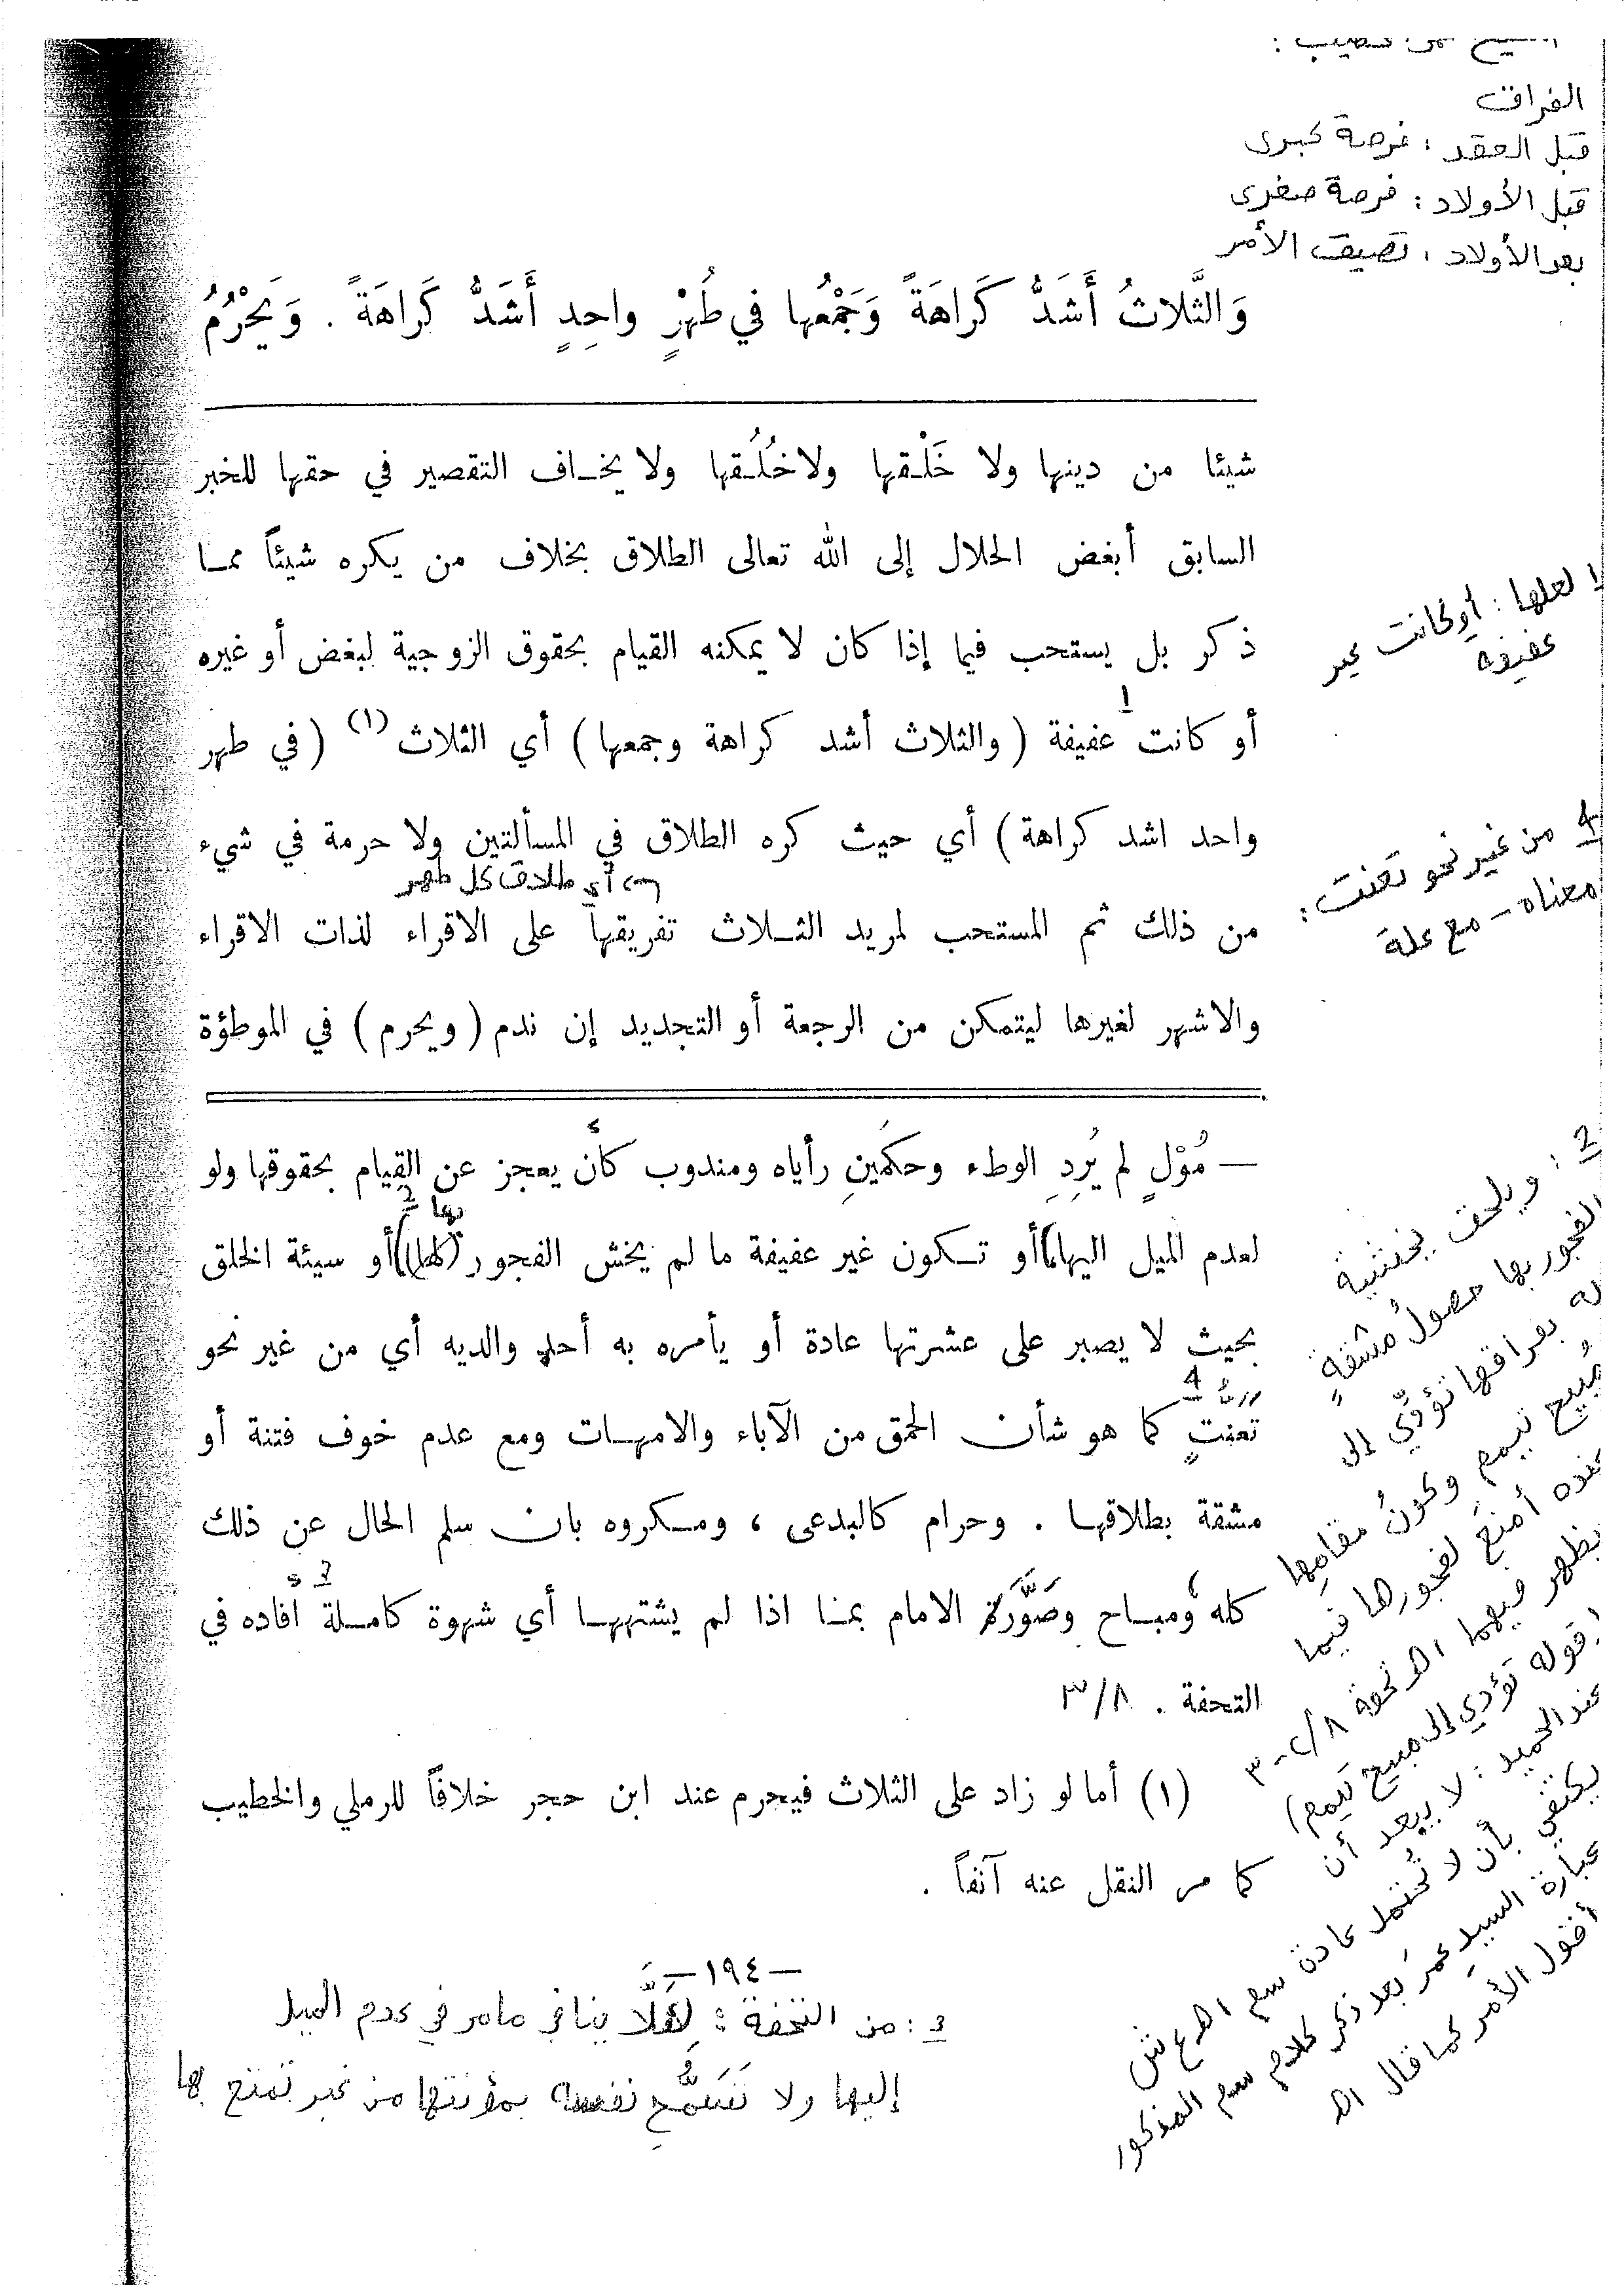 الفراق
قبل العقد : فرصة كبرى
قبل الأولاد : فرصة صغرى
بعد الأولاد : تضيق الأمر
وَالثَّلاثُ أَشَدُّ كَراهَةً وَجَمْعُها في طُهْرٍ واحِدٍ أَشَدُّ كَراهَةً . وَيَحْرُمُ
شيئا من دينها ولا خَلْقها ولا خُلُقها ولا يخاف التقصير في حقها للخبر
السابق أبغض الحلال إلى الله تعالى الطلاق بخلاف من يكره شيئاً مما
ذكر بل يستحب فيما إذا كان لا يمكنه القيام بحقوق الزوجية لبغض أو غيره
أو كانت عفيفة ( والثلاث أشد كراهة وجمعها ) أي الثلاث (١) ( في طهر
واحد اشد كراهة ) أي حيث كره الطلاق في المسألتين ولا حرمة في شيء
أي طلاق كل طهر
من ذلك ثم المستحب لمريد الثلاث تفريقها على الاقراء لذات الاقراء
والاشهر لغيرها ليتمكن من الرجعة أو التجديد إن ندم ( ويحرم ) في الموطؤة
1 لعلها : أو كانت غير
عفيفة
4 من غير نحو تعنت :
معناه - مع علة
— مُوْلٍ لم يُرِدِ الوطء وحكمَينِ رأياه ومندوب كأن يعجز عن القيام بحقوقها ولو
بها 2
لعدم الميل اليها أو تكون غير عفيفة ما لم يخش الفجور (لها) أو سيئة الخلق
بحيث لا يصبر على عشرتها عادة أو يأمره به أحد والديه أي من غير نحو
4
تعنتٍ كما هو شأن الحمق من الآباء والامهات ومع عدم خوف فتنة أو
مشقة بطلاقها . وحرام كالبدعى ، ومكروه بان سلم الحال عن ذلك
3
كله ومباح وصَوَّرَه الامام بما اذا لم يشتهها أي شهوة كاملة افاده في
التحفة . ٣/٨
(١) أما لو زاد على الثلاث فيحرم عند ابن حجر خلافاً للرملي والخطيب
كما مر النقل عنه آنفاً .
2 : ويلحق بخشية
الفجور بها حصولُ مشقةٍ
له بفراقها تؤدّي إلى
مُبيح تيممٍ وكونُ مقامِها
عنده أمنعَ لفجورها فيما
يظهر فيهما اهـ تحفة ٨/٢-٣
(قوله تؤدي إلى مبيح تيمم)
عبد الحميد : لا يبعد أن
يكتفي بأن لا تُحتمل عادة سم اهـ ع ش
عبارة السيد عمر بعد ذكر كلام سم المذكور
أقول الأمر كما قال اهـ
—١٩٤—
3 : من التحفة : لئلّا ينافي ما مر في عدم الميل
إليها ولا تَسْمَحُ نفسه بمؤنتها من غير تمتع بها